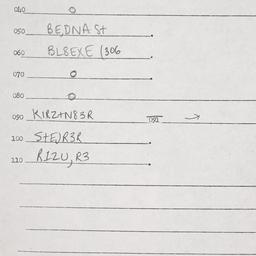 040 O
050 BEDNA St
060 BL8EXE (306
070 O
080 O
090 KIRZTN83R 091 →
100 StE)R3R
110 RIZU, R3